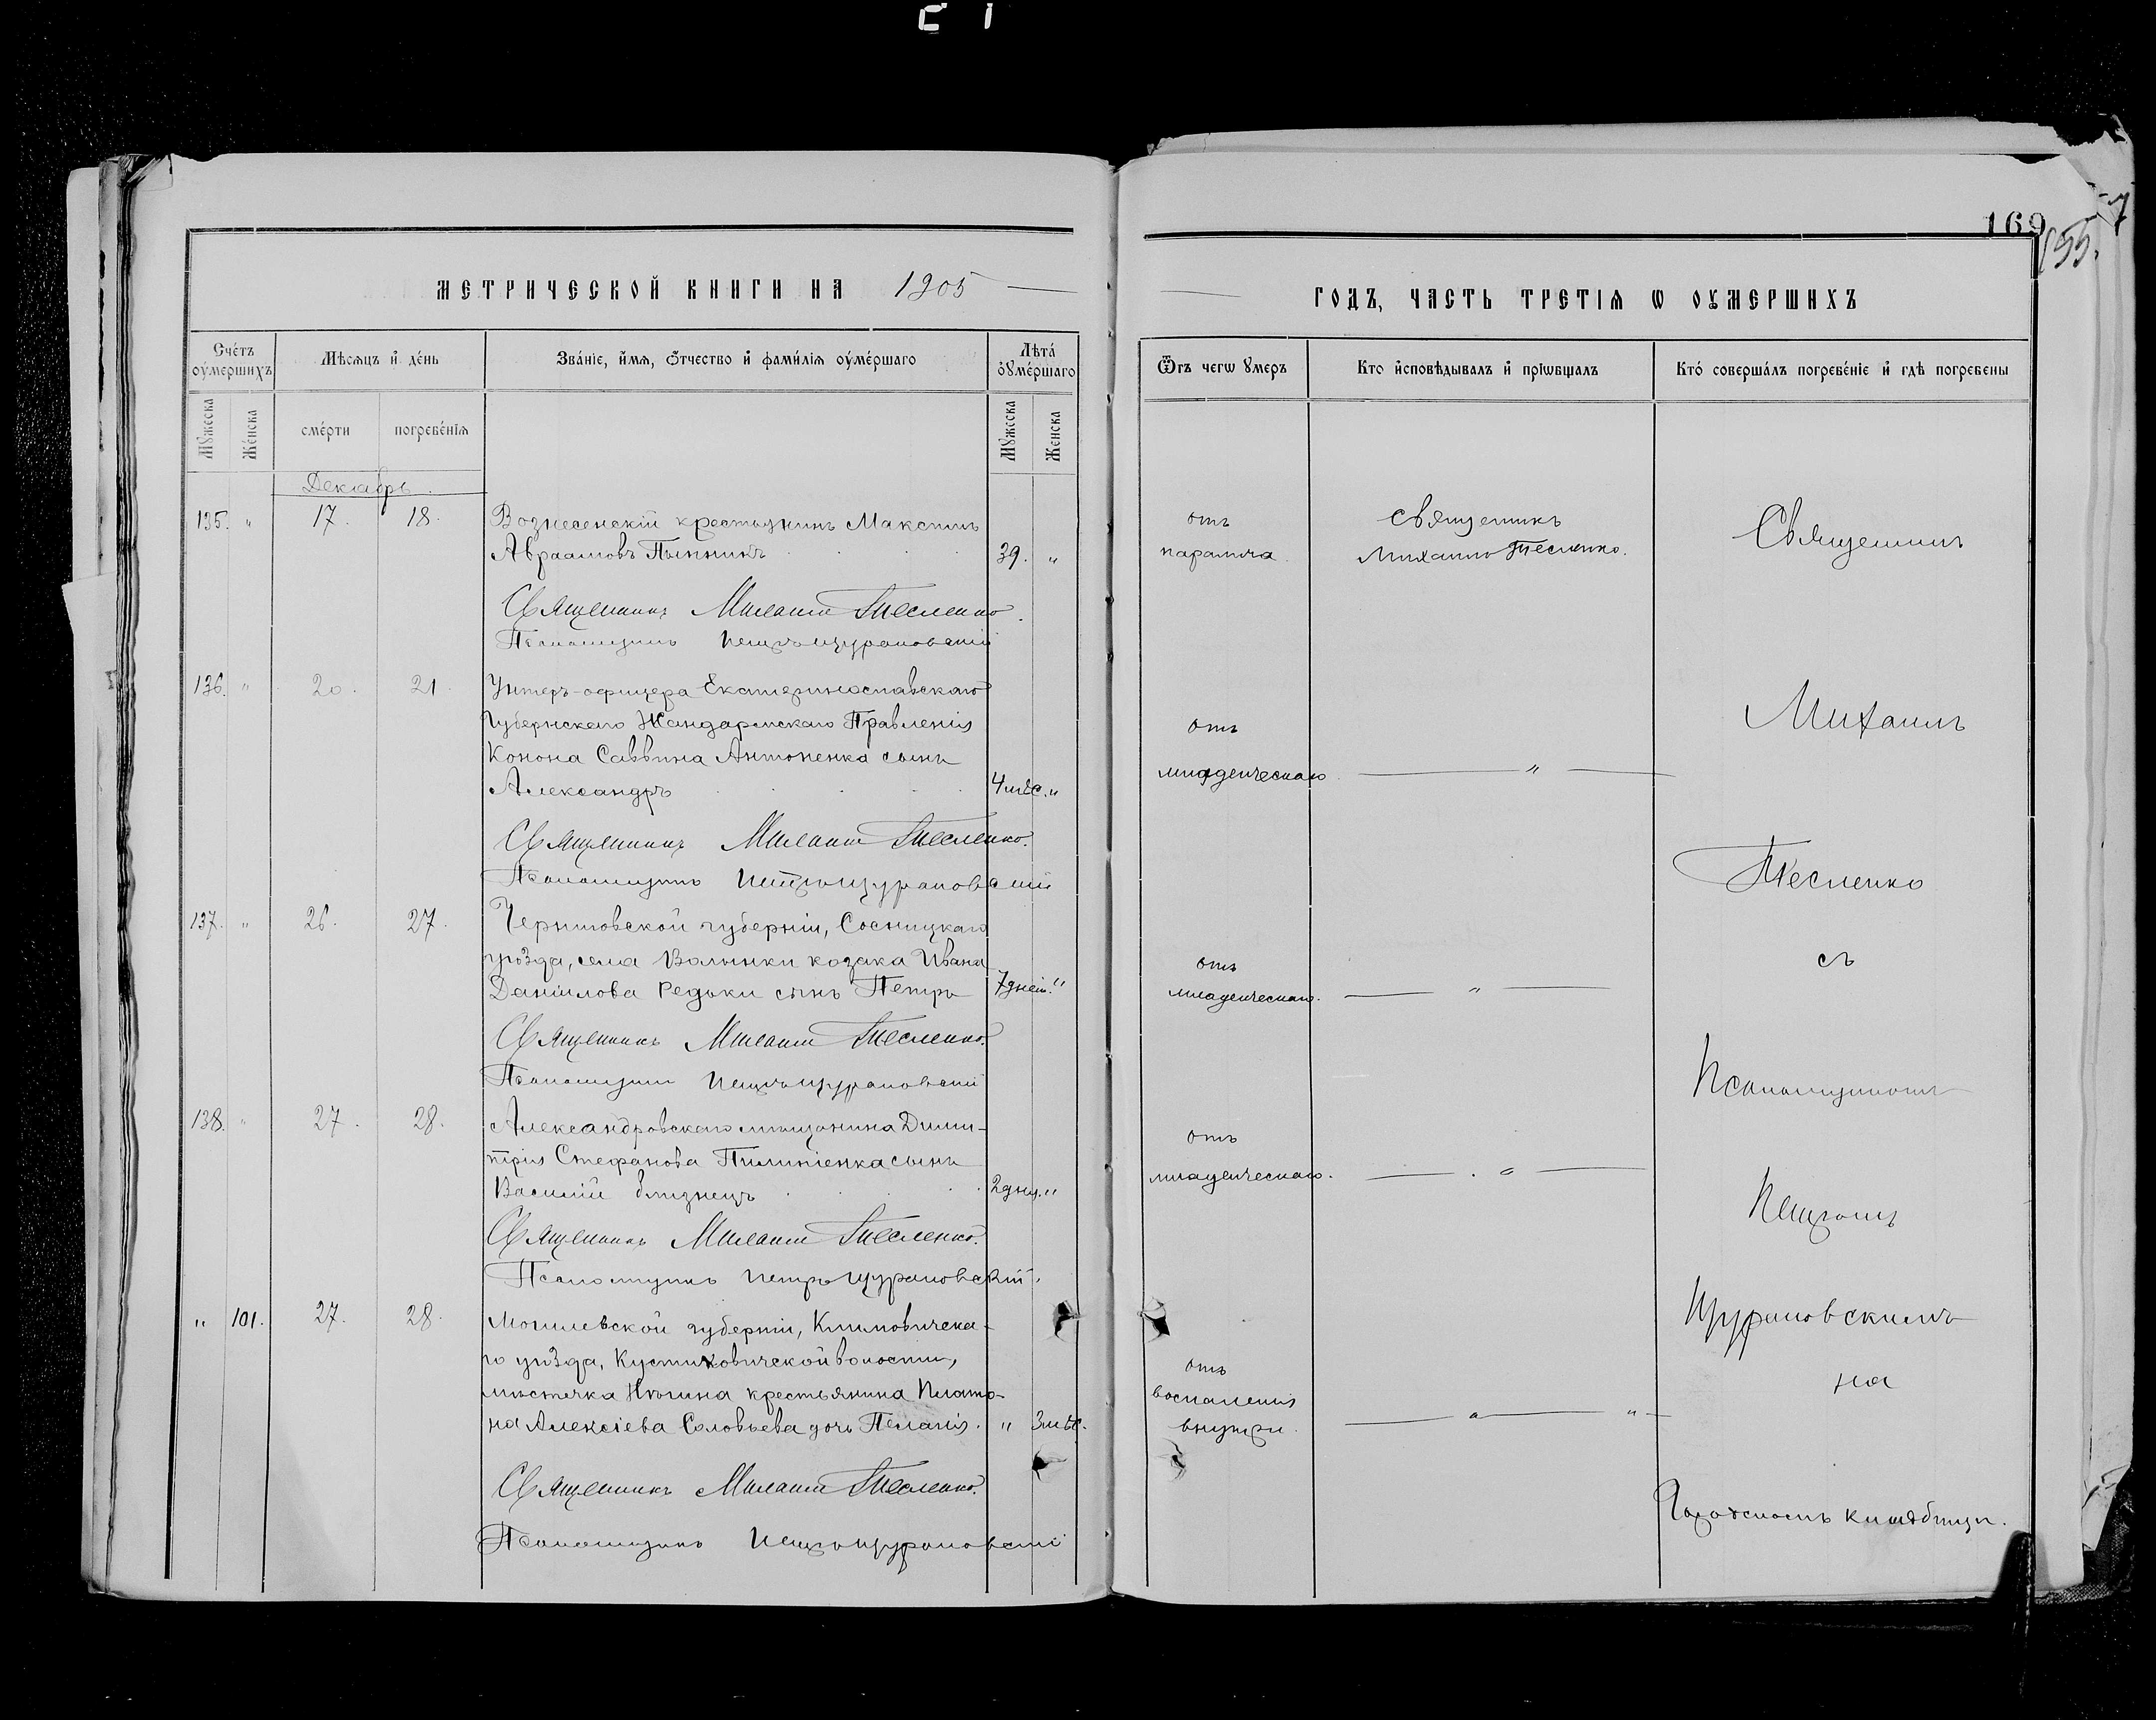 169
155.
МЕТРИЧЕСКОЙ КНИГИ НА 1905
ГОДЪ, ЧАСТЬ ТРЕТІЯ Ѡ ОУМЕРШИХЪ
Счетъ оумершихъ
Мѣсяцъ и день
Званіе, имя, отчество и фамилія оумершаго
Лѣта оумершаго
Ѿ чегѡ умеръ
Кто исповѣдывалъ и пріѡбщалъ
Кто совершалъ погребеніе и гдѣ погребены
Мужеска
Женска
смерти
погребенія
Мужеска
Женска
Декабрь.
135. " 17. 18. Вознесенскій крестьянинъ Максимъ
Авраамовъ 39. "
отъ
паралича
священникъ
Михаилъ Тесленко.
Священникъ Михаилъ Тесленко.
Псаломщикъ Петръ Щурановскій
136. " 20. 21. Унтеръ-офицера Екатеринославскаго
Губернскаго Жандармскаго Правленія
Конона Саввина Антоненка сынъ
Александръ 4 мѣс. "
отъ
младенческаго "
Священникъ Михаилъ Тесленко.
Псаломщикъ Петръ Щурановскій
137. " 26. 27. Черниговской губерніи, Сосницкаго
уѣзда, села Волынки козака Ивана
Даніилова Редьки сынъ Петръ 7 дней. "
отъ
младенческаго. "
Священникъ Михаилъ Тесленко.
Псаломщикъ Петръ Щурановскій
138. " 27. 28. Александровскаго мѣщанина Дими-
трія Стефанова Пилипенка сынъ
Василій близнецъ 2 дня. "
отъ
младенческаго. "
Священникъ Михаилъ Тесленко.
Псаломщикъ Петръ Щурановскій.
" 101. 27. 28. Могилевской губерніи, Климовичска-
го уѣзда,
волости,
мѣстечка крестьянина Плато-
на Алексіева Соловьева дочь Пелагія. " 3 мѣс.
отъ
воспаленія
внутри. "
Священникъ Михаилъ Тесленко.
Псаломщикъ Петръ Щурановскій
Священникъ
Михаилъ
Тесленко
съ
Псаломщикомъ
Петромъ
Щурановскимъ
на
Городскомъ кладбищѣ.